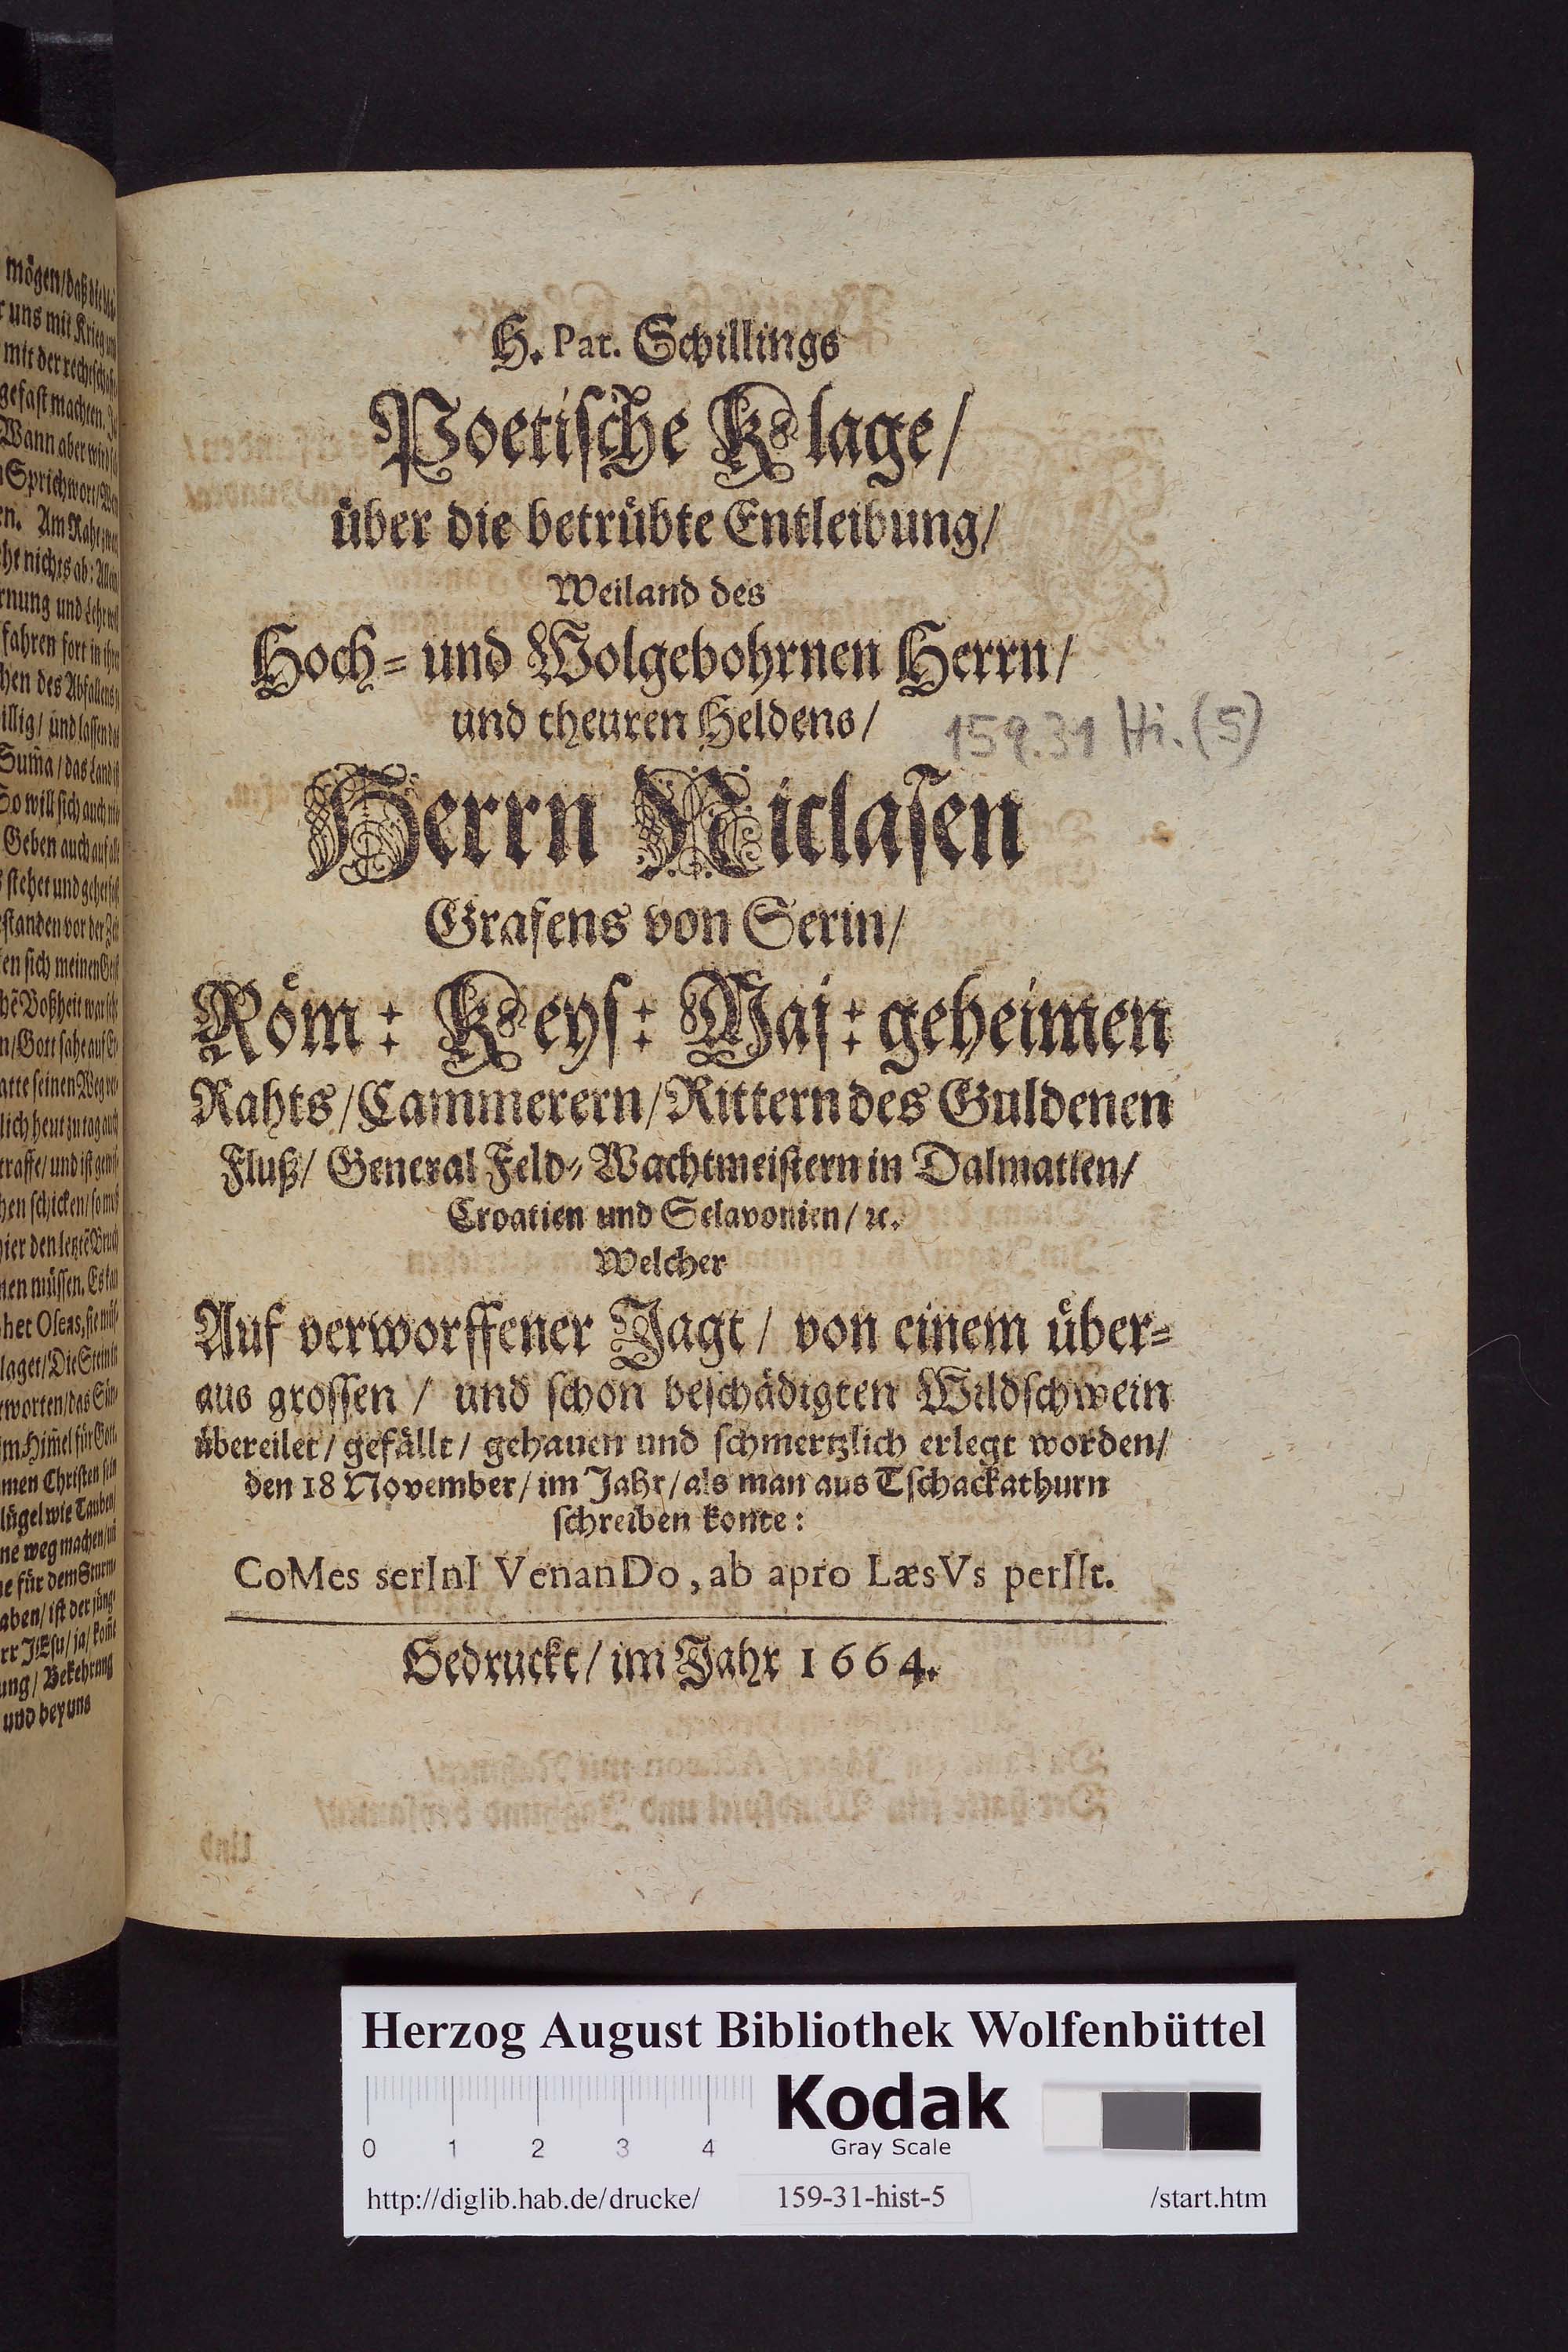 H. Pat. Schillings
Poetische Klage/
über die betrübte Entleibung/
Weiland des
Hoch= und Wolgebohrnen Herrn/
und theuren Heldens/
159.31 Hi. (5)
Herrn Niclasen
Grafens von Serin/
Röm: Keys: Maj: geheimen
Rahts/Cammerern/Rittern des Guldenen
Fluß/ General Feld=Wachtmeistern in Dalmatien/
Croatien und Sclavonien/ ꝛc.
Welcher
Auf verworffener Jagt / von einem über=
aus grossen / und schon beschädigten Wildschwein
übereilet/ gefällt/ gehauen und schmertzlich erlegt worden/
den 18 November/ im Jahr/ als man aus Tschackathurn
schreiben konte:
CoMes serInI VenanDo, ab apro LæsVs perIIt.
Gedruckt/ im Jahr 1664.
mögen/daß die
uns mit Krieg
mit der
gefast machten.
Wann aber wird
Sprichwort/
en. Am Raht
nichts ab:
rnung und Lehr
fahren fort in
hen des Abfallens
illig/ und lassen
Suma/das Land
So will sich auch
Geben auch auf
stehet und gehet
standen vor der Zeit
en sich meinen
Boßheit war
n/Gott sahe auf
atte seinen Weg
lich heut zu tag auch
traffe/ und ist
hen schicken/so
hier den letzte
nen müssen. Es kan
laget/Die
worten/das
im Himel für Gott
men Christen sein
lügel wie Tauben/
ne weg machen/
e für dem Sturm
aben/ ist der
rr JEsu/ ja/ komt
ung/ Bekehrung
und bey uns
Herzog August Bibliothek Wolfenbüttel
Kodak
Gray Scale
0 1 2 3 4
http://diglib.hab.de/drucke/ 159-31-hist-5 /start.htm